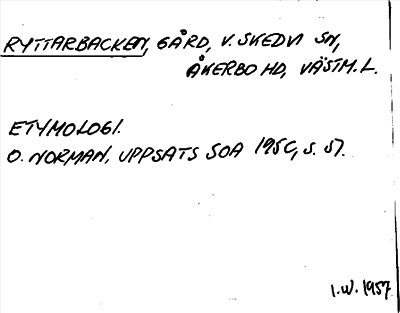 RYTTARBACKEN, GÅRD, V. SKEDVI SN,
ÅKERBO HD, VÄSTM. L.
ETYMOLOGI.
O. NORMAN, UPPSATS SOA 1956, S. 51.
I.W. 1957